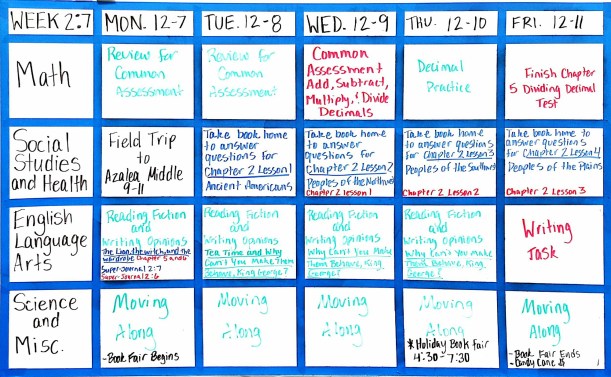 WEEK 2:7
MON. 12-7
TUE. 12-8
WED. 12-9
THU. 12-10
FRI. 12-11
Math
Review for
Common
Assessment
Review for
Common
Assessment
Common
Assessment
Add, Subtract,
Multiply, & Divide
Decimals
Decimal
Practice
Finish Chapter
5 Dividing Decimal
Test
Social
Studies
and Health
Field Trip
to
Azalea Middle
9-11
Take book home
to answer
questions for
Chapter 2 Lesson 1
Ancient Americans
Take book home
to answer
questions for
Chapter 2 Lesson 2
Peoples of the Northwest
Chapter 2 lesson 1
Take book home
to answer questions
for Chapter 2 Lesson 3
Peoples of the Southwest
Chapter 2 Lesson 2
Take book home to
answer questions
for Chapter 2 Lesson 4
Peoples of the Plains
Chapter 2 Lesson 3
English
Language
Arts
Reading Fiction
and
Writing Opinions
The Lion, the witch, and the
wardrobe Chapter 5 and 6
Super Journal 2:7
Super Journal 2:6
Reading Fiction
and
Writing Opinions
Tea Time and Why
Can't You Make Them
Behave, King George?
Reading Fiction
and
Writing Opinions
Why Can't You Make
Them Behave, King
George?
Reading Fiction
and
Writing Opinions
Why Can't you make
Them Behave, King
George?
Writing
Task
Science
and
Misc.
Moving
Along
-Book Fair Begins
Moving
Along
Moving
Along
Moving
Along
*Holiday Book fair
4:30-7:30
Moving
Along
-Book Fair Ends
-Candy Cane